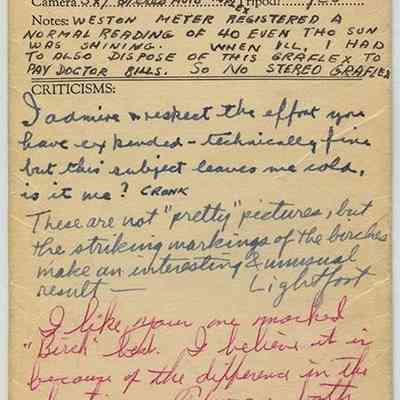 Camera 5x7 Tripod:
Notes: WESTON METER REGISTERED A
NORMAL READING OF 40 EVEN THO SUN
WAS SHINING. WHEN ILL, I HAD
TO ALSO DISPOSE OF THIS GRAFLEX TO
PAY DOCTOR BILLS. SO NO STEREO GRAFLEX
CRITICISMS:
I admire & respect the effort you
have expended - technically fine
but this subject leaves me cold,
is it me? CRONK
These are not "pretty" pictures, but
the striking markings of the birches
make an interesting & unusual
result — Lightfoot
I like your one marked
"Birch" best. I believe it is
because of the difference in the
both